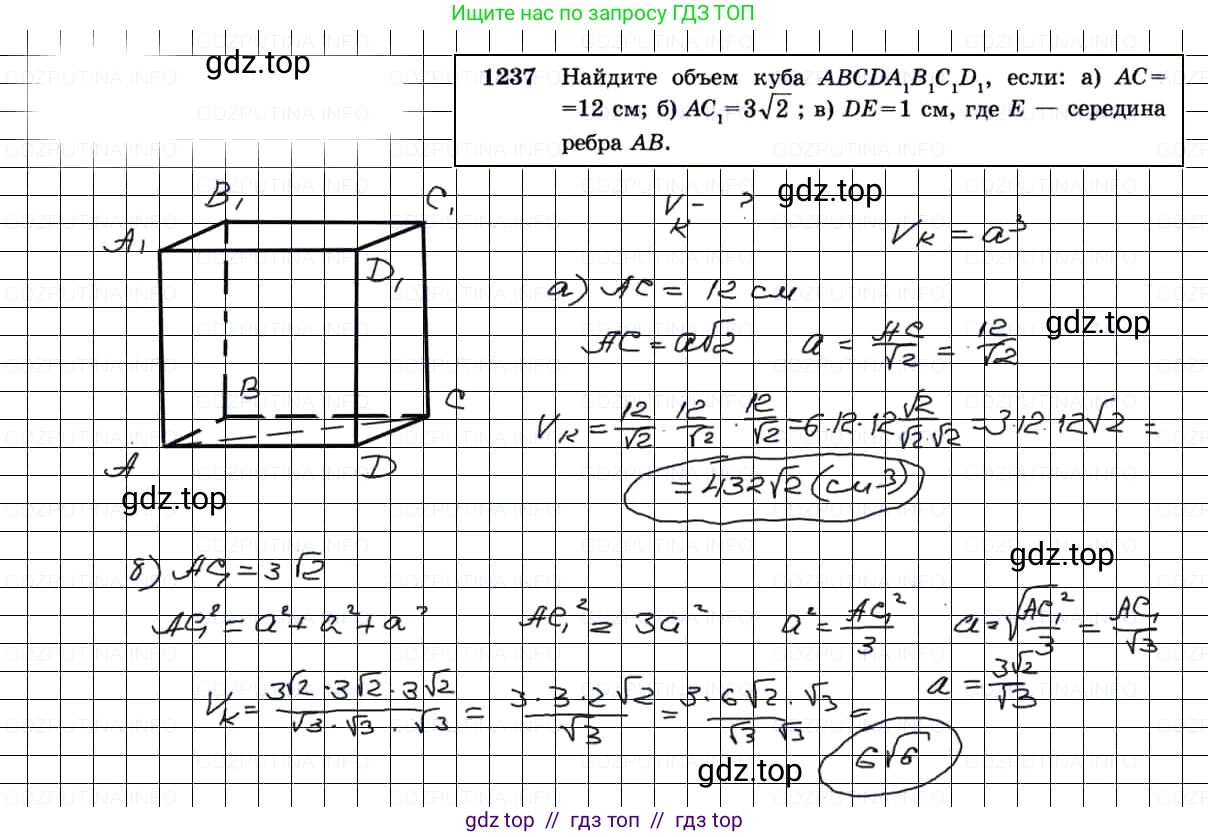 Ищите нас по запросу ГДЗ ТОП
gdz.top
1237 Найдите объем куба ABCDA₁B₁C₁D₁, если: а) AC=
=12 см; б) AC₁=3√2 ; в) DE=1 см, где E — середина
ребра AB.
gdz.top
B₁ C₁
A₁ D₁
B C
A D
Vк - ?
Vк = a³
а) AC = 12 см
AC = a√2 a = AC/√2 = 12/√2
gdz.top
Vк = 12/√2 · 12/√2 · 12/√2 = 6·12·12 √2/(√2·√2) = 3·12·12√2 =
= 432√2 (см3)
gdz.top
б) AC₁ = 3√2
gdz.top
AC₁² = a² + a² + a² AC₁² = 3a² a² = AC₁²/3 a = √(AC₁²/3) = AC₁/√3
a = 3√2/√3
Vк = (3√2 · 3√2 · 3√2)/(√3 · √3 · √3) = (3·3·2√2)/√3 = (3·6√2·√3)/(√3 √3) =
6√6
gdz.top
gdz top // гдз топ // gdz top
GDZPUTINA.INFO